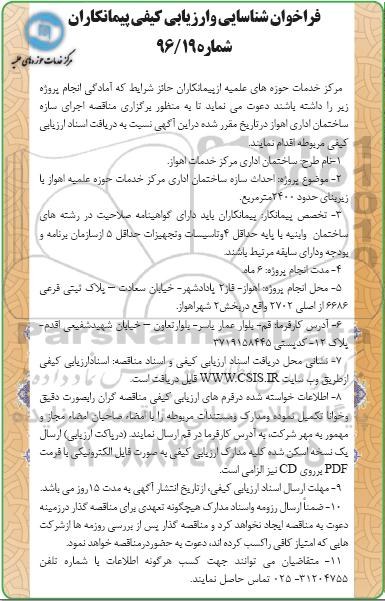 فراخوان شناسایی وارزیابی کیفی پیمانکاران
شماره ۹۶/۱۹
مرکز خدمات حوزه های علمیه
مرکز خدمات حوزه های علمیه ازپیمانکاران حائز شرایط که آمادگی انجام پروژه
زیر را داشته باشند دعوت می نماید تا به منظور برگزاری مناقصه اجرای سازه
ساختمان اداری اهواز درتاریخ مقرر شده دراین آگهی نسبت به دریافت اسناد ارزیابی
کیفی مربوطه اقدام نمایند.
۱-نام طرح: ساختمان اداری مرکز خدمات اهواز.
۲- موضوع پروژه: احداث سازه ساختمان اداری مرکز خدمات حوزه علمیه اهواز با
زیربنای حدود ۲۴۰۰مترمربع.
۳- تخصص پیمانکار: پیمانکاران باید دارای گواهینامه صلاحیت در رشته های
ساختمان وابنیه با پایه حداقل ۴وتاسیسات وتجهیزات حداقل ۵ ازسازمان برنامه و
بودجه ودارای سابقه مرتبط باشند.
۴- مدت انجام پروژه: ۶ ماه.
۵- محل انجام پروژه: اهواز- فاز۲ پادادشهر- خیابان سعادت – پلاک ثبتی قرعی
۶۶۸۶ از اصلی ۲۷۰۲ واقع دربخش۲ شهراهواز.
۶- آدرس کارفرما: قم- بلوار عمار یاسر- بلوارتعاون – خیابان شهیدشفیعی اقدم-
پلاک ۱۲- کدپستی ۳۷۱۹۱۵۸۴۴۵
۷- نشانی محل دریافت اسناد ارزیابی کیفی و اسناد مناقصه: اسنادارزیابی کیفی
ازطریق وب سایت WWW.CSIS.IR قابل دریافت است.
۸- اطلاعات خواسته شده درفرم های ارزیابی کیفی مناقصه گران رابصورت دقیق
وخوانا تکمیل نموده ومدارک ومستندات مربوطه را با امضاء صاحبان امضاء مجاز و
ممهور به مهر شرکت، به آدرس کارفرما در قم ارسال نمایند. (درپاکت ارزیابی) ارسال
یک نسخه اسکن شده کلیه مدارک ارزیابی کیفی به صورت فایل الکترونیکی با فرمت
PDF برروی CD نیز الزامی است.
۹- مهلت ارسال اسناد ارزیابی کیفی، ازتاریخ انتشار آگهی به مدت ۱۵روز می باشد.
۱۰- ضمناً ارسال رزومه واسناد مدارک هیچگونه تعهدی برای مناقصه گذار درزمینه
دعوت به مناقصه ایجاد نخواهد کرد و مناقصه گذار پس از بررسی روزمه ها ازشرکت
هایی که امتیاز کافی راکسب کرده اند، دعوت به حضوردرمناقصه خواهد نمود.
۱۱- متقاضیان می توانند جهت کسب هرگونه اطلاعات با شماره تلفن
۳۱۲۰۴۷۵۵- ۰۲۵ تماس حاصل نمایند.